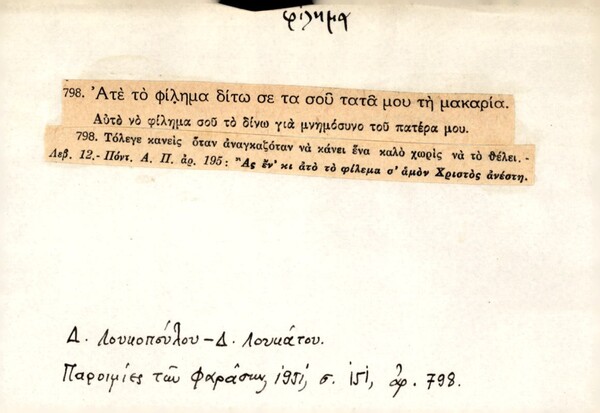 φίλημα
798. Ἀτὲ τὸ φίλημα δίτω σε τα σοῦ τατᾶ μου τὴ μακαρία.
Αὐτὸ νὸ φίλημα σοῦ τὸ δίνω γιὰ μνημόσυνο τοῦ πατέρα μου.
798. Τόλεγε κανεὶς ὅταν ἀναγκαζόταν νὰ κάνει ἕνα καλὸ χωρὶς νὰ τὸ θέλει.-
Λεβ. 12.- Πόντ. Α. Π. ἀρ. 195: "Ἂς ἔν' κι ἀτὸ τὸ φίλεμα σ' ἀμὸν Χριστὸς ἀνέστη.
Δ. Λουκοπούλου - Δ. Λουκάτου.
Παροιμίες τῶν Φαράσων, 1951, σ. 151, ἀρ. 798.